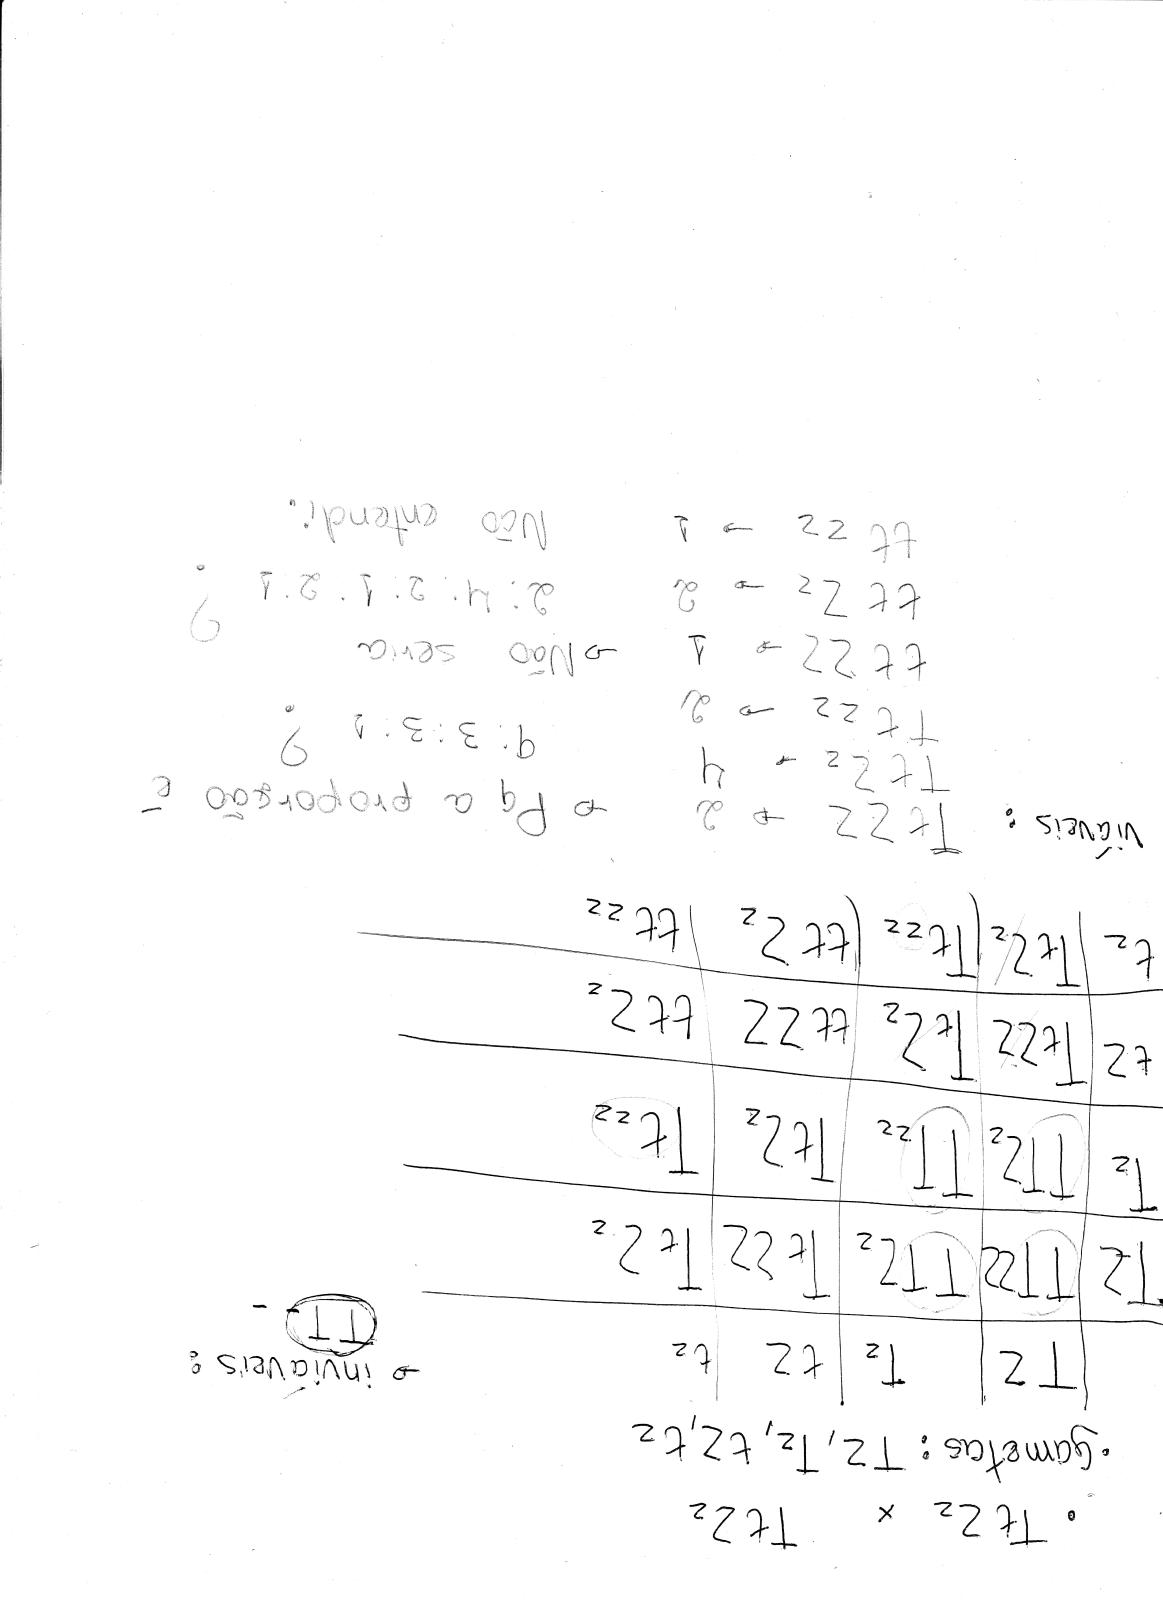 • TtZz × TtZz
• gametas: TZ, Tz, tZ, tz
→ inviáveis: TT--
TZ | Tz | tZ | tz
TZ | TTZZ | TTZz | TtZZ | TtZz
Tz | TTZz | TTzz | TtZz | Ttzz
tZ | TtZZ | TtZz | ttZZ | ttZz
tz | TtZz | Ttzz | ttZz | ttzz
viáveis: TtZZ → 2 → Pq a proporção é
TtZz → 4 9:3:3:1 ?
Ttzz → 2
ttZZ → 1 → Não seria
ttZz → 2 2:4:2:1:2:1 ?
ttzz → 1 Não entendi.